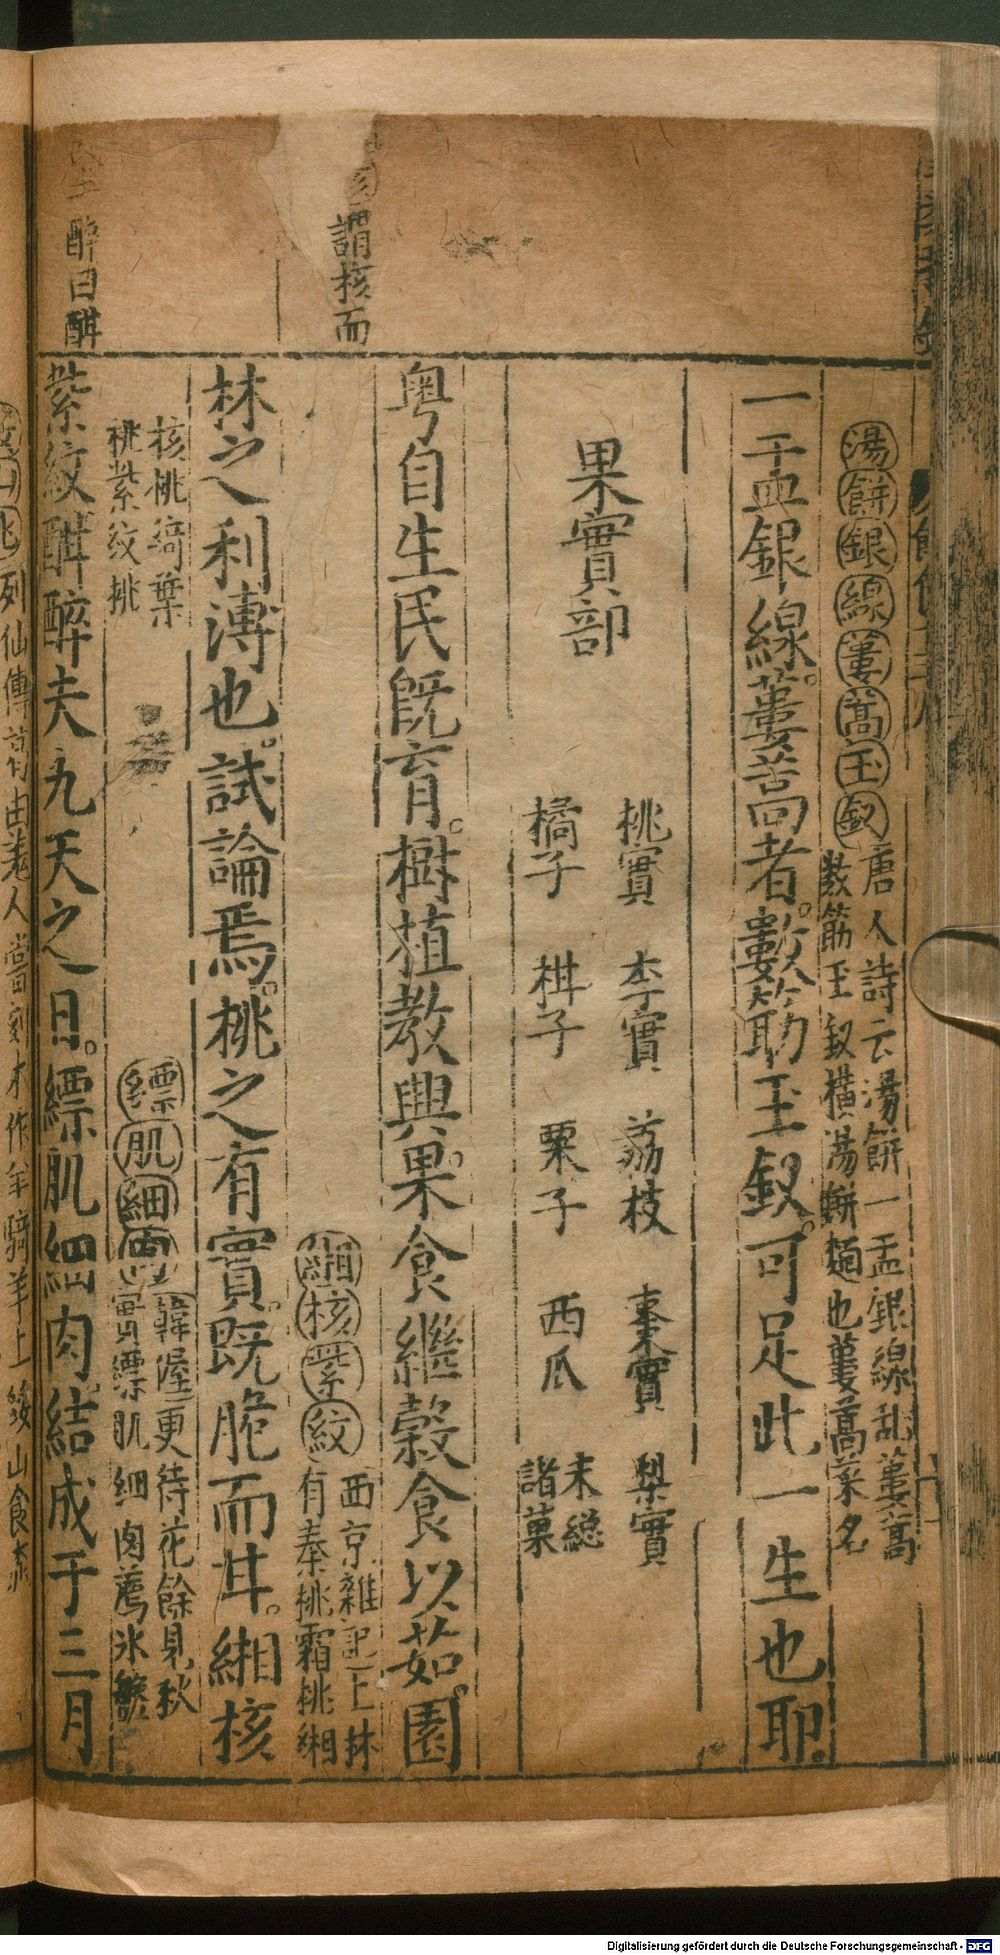 湯餅銀線蔞蒿玉釵
唐人詩云湯餅一盂銀線乱蔞蒿
数筯玉釵橫湯餅麺也蔞蒿菜名
一盂銀線。蔞蒿回者。數筯玉釵。可足此一生也耶。
果實部
桃實 李實 荔枝 棗實 梨實
橘子 柑子 栗子 西瓜 末總諸菓
謂核而
粤自生民旣育。樹植教興。果食繼穀食以茹。園
緗核紫紋
西京雜記上林
有秦桃霜桃緗
林之利溥也。試論焉。桃之有實。既脆而甘。緗核
核桃綺葉
桃紫紋桃
縹肌細肉
韓偓更待花餘見秋
實縹肌細肉薦氷盤
醉曰酣
紫紋酣醉夫九天之日。縹肌細肉。結成于三月
列仙傳葛由羗人嘗刻木作羊騎羊上綏山食桃
Digitalisierung gefördert durch die Deutsche Forschungsgemeinschaft - DFG